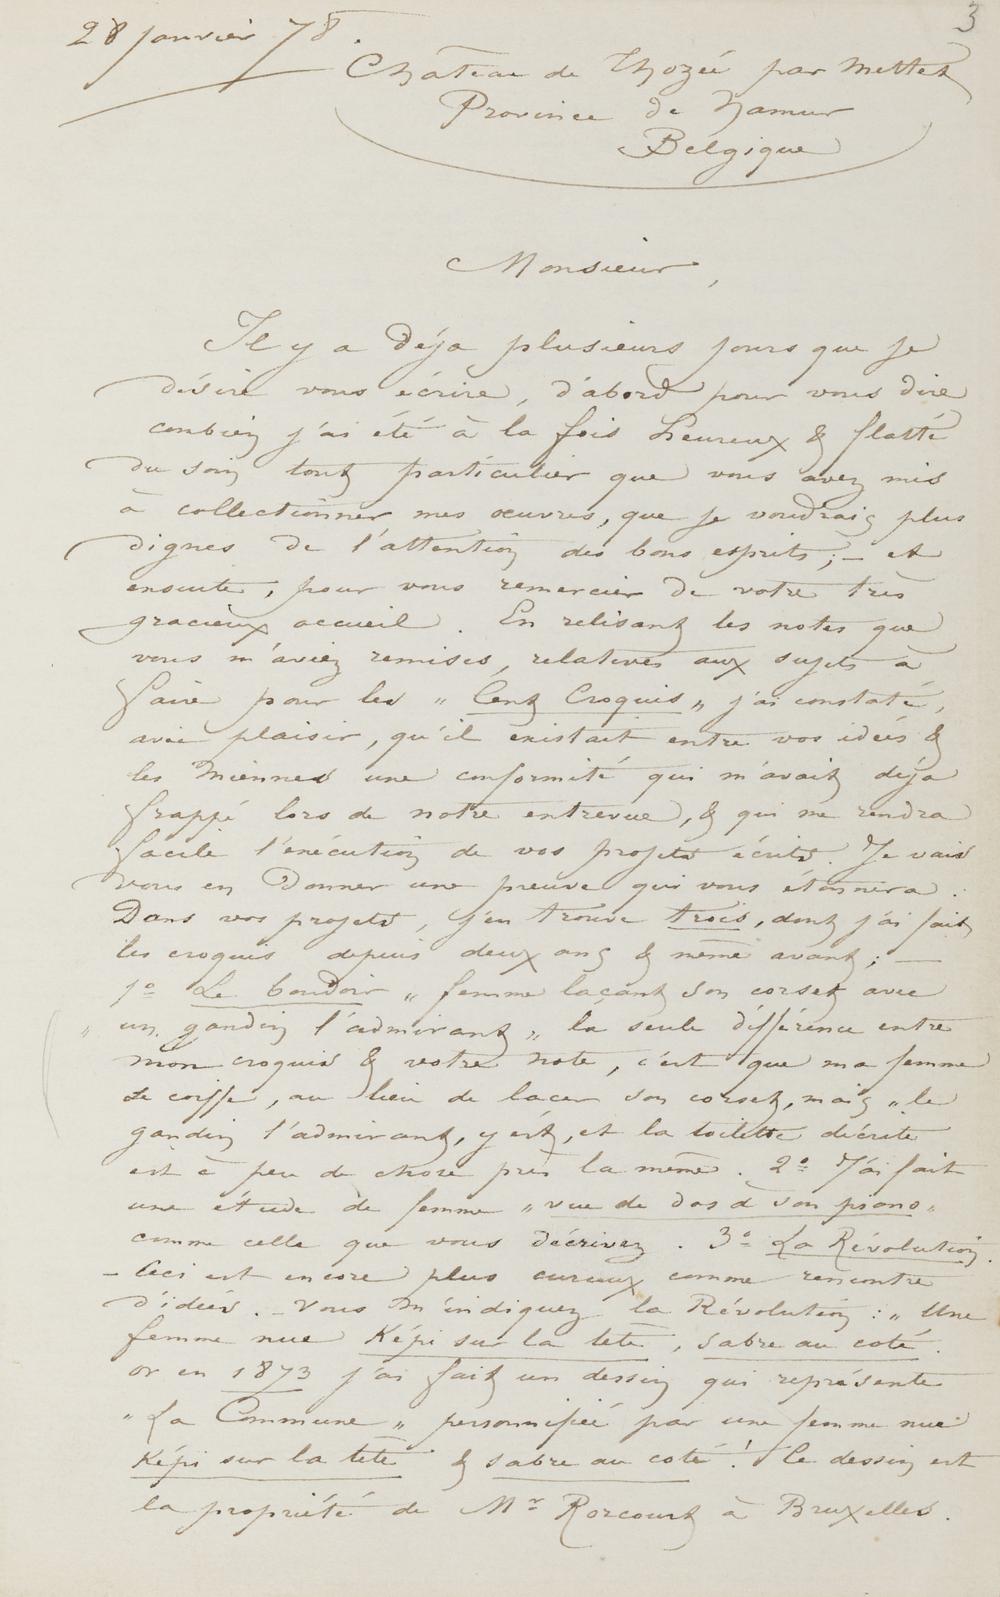 3
28 janvier 78.
Château de Thozée par Mettet
Province de Namur
Belgique
Monsieur,
Il y a déja plusieurs jours que je
désire vous écrire, d'abord pour vous dire
combien j'ai été à la fois heureux & flatté
du soin tout particulier que vous avez mis
à collectionner mes œuvres, que je voudrais plus
dignes de l'attention des bons esprits; – et
ensuite, pour vous remercier de votre très
gracieux accueil. En relisant les notes que
vous m'aviez remises, relatives aux sujets à
faire pour les "Cent Croquis" j'ai constaté,
avec plaisir, qu'il existait entre vos idées &
les miennes une conformité qui m'avait déja
frappé lors de notre entrevue, & qui me rendra
facile l'exécution de vos projets écrits. Je vais
vous en donner une preuve qui vous étonnera.
Dans vos projets, j'en trouve trois, dont j'ai fait
les croquis depuis deux ans & même avant; —
1º Le boudoir "femme laçant son corset avec
" un gandin l'admirant" la seule différence entre
mon croquis & votre note, c'est que ma femme
se coiffe, au lieu de lacer son corset, mais "le
gandin l'admirant, y est, et la toilette décrite
est à peu de chose près la même. 2º J'ai fait
une étude de femme "vue de dos à son piano"
comme celle que vous décrivez. 3º La Révolution.
– Ceci est encore plus curieux comme rencontre
d'idées. – Vous m'indiquez la Révolution: "Une
femme nue Képi sur la tête, sabre au coté.
or en 1873 j'ai fait un dessin qui représente
"La Commune" personnifiée par une femme nue
Képi sur la tête & sabre au coté! Ce dessin est
la propriété de Mr Rorcourt à Bruxelles.